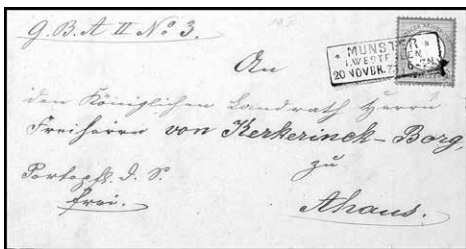 G. B. A II No 3.
* MÜNSTER *
I. WESTFALEN
20 NOVBR. 73 6-7N.
An
den Königlichen Landrath Herrn
Freiherrn von Kerkerinck-Borg,
zu
Portopfl. D. S.
frei.
Ahaus.